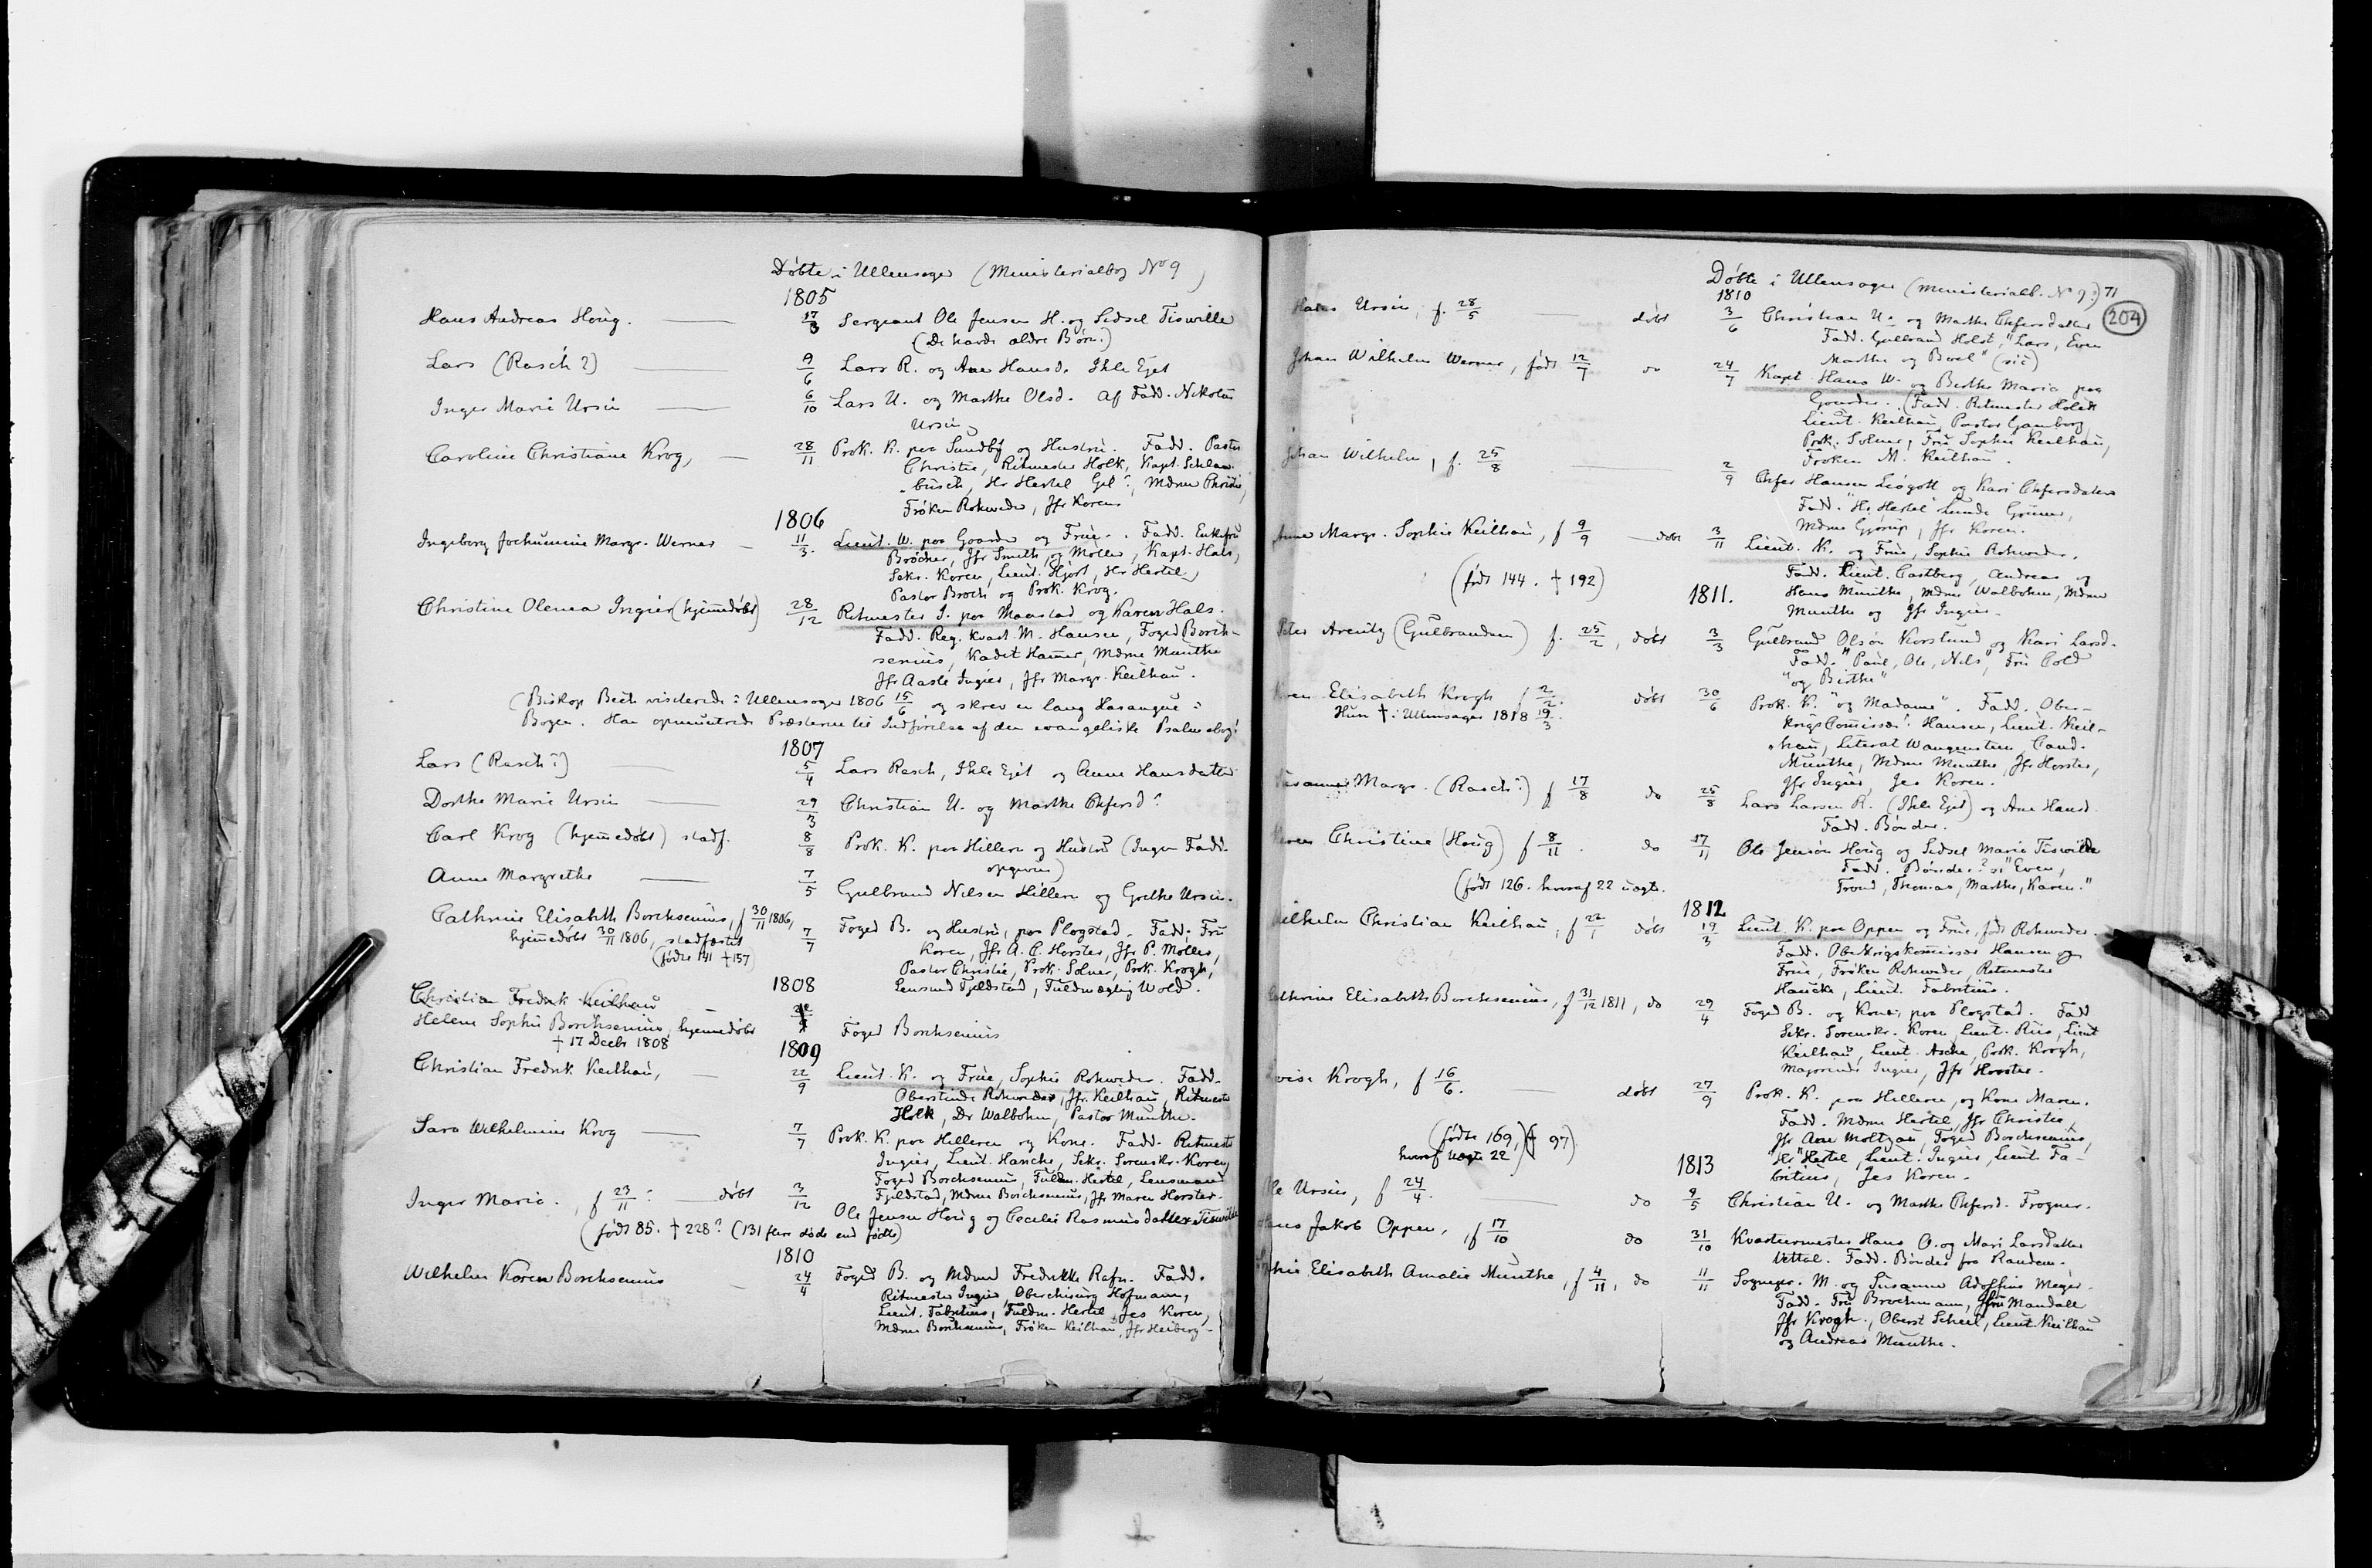 Døbte i Ullensager (Ministerialbog No 9)
1805
Hans Andreas Houg. 17/3 Sergeant Ole Jensen H. og Sidsel Tiswille
(De havde ældre Børn.)
Lars (Rasch?) 9/6 Lars R. og Ane Hansd. Ihle Ejet
Inger Marie Ursin 6/10 Lars U. og Marthe Olsd. Af Fadd. Nikolus
Ursin
Caroline Christiane Krog, 28/11 Prok. K. paa Sundby og Hustru. Fadd. Pastor
Christie, Ritmester Holk, Kapt. Schlan-
busch, Hr Hertel, Mdme Christie,
Frøken Rohweder, Jfr Koren
1806
Ingeborg Jochumine Margr. Werner 11/3. Lieut. W. paa Gaarder og Frue. Fadd. Enkefru
Brocher, Jfr Smith og Møller, Kapt. Hals,
Sekr. Koren, Lieut. Hjort, Hr Hertel,
Pastor Broch og Prok. Krog.
Christine Olenea Ingier (hjemmedøbt) 28/12 Ritmester I. paa Maastad og Karen Hals.
Fadd. Reg. Kvart. M. Hansen, Foged Borch-
senius, Kadet Hammer, Mdme Munthe
Jfr Aasle Ingier, Jfr Margr. Keilhau.
(Biskop Bech visiterede i Ullensager 1806 15/6 og skrev en lang Harangue i
Bogen. Han opmuntrede Præsterne til Indførelse af den evangeliske Psalmebog!
1807
Lars (Rasch?) 5/4 Lars Rasch, Ihle Ejet og Anne Hansdatter
Dorthe Marie Ursin 29/3 Christian U. og Marthe Chfersd?
Carl Krog (hjemmedøbt) stadf. 8/8 Prok. K. paa Hilleren og Hustru (Ingen Fadd.
opgivne)
Anne Margrethe 7/5 Gulbrand Nilsen Hilleren og Grethe Ursin.
Cathrine Elisabeth Borchsenius, f 30/11 1806,
hjemmedøbt 30/11 1806, stadfæstet 7/7 Foged B. og Hustru, paa Plogstad. Fadd. Fru
(fødte 141 † 157) Koren, Jfr A. C. Horster, Jfr P. Møller,
Pastor Christie, Prok. Solner, Prok. Krogh,
Lensmand Fjeldstad, Fuldmægtig Wold.
1808
Christian Fredrik Keilhau
Helene Sophie Borchsenius, hjemmedøbt Foged Borchsenius
† 17 Decbr 1808
1809
Christian Fredrik Keilhau, 22/9 Lieut. K. og Frue, Sophie Rohweder. Fadd.
Oberstinde Rohweder, Jfr. Keilhau, Ritmester
Holk, Dr Walbohm, Pastor Munthe.
Sara Wilhelmine Krog 7/7 Prok. K. paa Hilleren og Kone. Fadd. Ritmester
Ingier, Lieut. Hancke, Sekr. Sorenskr. Koren,
Foged Borchsenius, Fuldm. Hertel, Lensmand
Fjeldstad, Mdme Borchsenius, Jfr Maren Horster.
Inger Marie, f 23/11? døbt 3/12 Ole Jensen Houg og Cecilie Rasmusdatter Tiswille
(født 85. † 228? (131 flere døde end fødte)
1810
Wilhelm Koren Borchsenius 24/4 Foged B. og Mdme Fredrikke Rafn. Fadd.
Ritmester Ingier, Oberchirurg Hofmann,
Lieut. Fabritius, Fuldm. Hertel, Jes Koren,
Mdme Borchsenius, Frøken Keilhau, Jfr Heiberg
Døbte i Ullensager (Ministerialb. No 9.) 71
204
1810
Ursin, f. 28/5 døbt 3/6 Christian U. og Marthe Chfersdatter
Fadd. Gulbrand Holst, "Lars, Even
Marthe og Boel" (sic)
Johan Wilhelm Werner, født 12/7 do 24/7 Kapt Hans W. og Berthe Maria paa
Gaarder. (Fadd. Ritmester Holck
Lieut. Keilhau, Pastor Gamborg,
Prok. Solner, Fru Sophie Keilhau,
Frøken M. Keilhau.
Johan Wilhelm, f. 25/8 2/9 Chfer Hansen Liøgott og Kari Chfersdatter
Fadd. "Hr. Hertel Lunde Gruner,
Mdme Gjørup, Jfr Koren.
Anne Margr. Sophie Keilhau, f 9/9 døbt 3/11 Lieut. K. og Frue, Sophie Rohweder.
Fadd. Lieut. Castberg, Andreas og
Hans Munthe, Mdme Walbohm, Mdme
Munthe og Jfr Ingier.
(født 144. † 192)
1811.
Peter Arentz (Gulbrandsen) f. 25/2, døbt 3/3 Gulbrand Olsøn Korslund og Kari Larsd.
Fadd. "Paul, Ole, Nils", Fru Cold
"og Berthe"
Elisabeth Krogh f 2/2. døbt 30/6 Prok. K. "og Madame". Fadd. Ober-
Hun † i Ullensager 1818 19/3. krigsCommissær Hansen, Lieut. Keil-
hau, Literat Wangensteen, Cand.
Munthe, Mdme Munthe, Jfr Horster,
Jfr Ingier, Jes Koren.
Susanne Margr. (Rasch?) f 17/8 do 25/8 Lars Larsen R. (Ihle Ejet) og Ane Hansd.
Fadd. Bønder.
Christine (Houg) f 8/11. do 17/11 Ole Jensøn Houg og Sidsel Marie Tiswilde
Fadd. Bønder? "Even,
Trond, Thomas, Marthe, Karen."
(født 126. hvoraf 22 uægt.
1812
Wilhelm Christian Keilhau, f 22/1 døbt 19/3 Lieut. K. paa Oppen og Frue, født Rohweder.
Fadd. Oberkrigskommissær Hansen og
Frue, Frøken Rohweder, Ritmester
Hancke, Lieut. Fabritius.
Cathrine Elisabeth Borchsenius, f 31/12 1811, do 29/4 Foged B. og Kone, paa Plogstad. Fadd
Sekr. Sorenskr. Koren, Lieut. Riis, Lieut
Keilhau, Lieut. Asche, Prok. Krogh,
Majorinde Ingier, Jfr Horster.
Krogh, f 16/6. døbt 27/9 Prok. K. paa Hilleren, og Kone Maren.
Fadd. Mdme Hertel, Jfr Christie,
Jfr Ane Moltzau, Foged Borchsenius,
"Hr" Hertel, Lieut. Ingier, Lieut. Fa-
britius, Jes Koren.
(fødte 169, † 97)
hvoraf uægte 22
1813
Ole Ursin, f 24/4. do 9/5 Christian U. og Marthe Chfersd. Frogner.
Hans Jakob Oppen, f 17/10 do 31/10 Kvartermester Hans O. og Mari Larsdatter
Vettal. Fadd. Bønder fra Randem.
Elisabeth Amalie Munthe, f 4/11, do 11/11 Sognepr. M. og Susanne Adolfine Meyer.
Fadd. Fru Brochmann, Jfru Mandall
Jfr Krogh, Oberst Scheel, Lieut Keilhau
og Andreas Munthe.